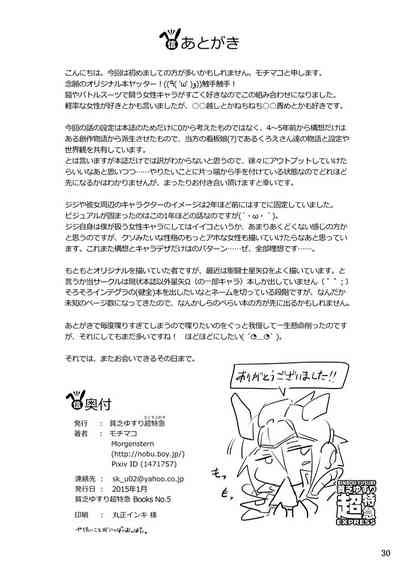 あとがき
こんにちは。今回は初めましての方が多いかもしれません。モチマコと申します。
念願のオリジナル本ヤッター！((٩(´ω`)و))触手触手！
鎧やバトルスーツで闘う女性キャラがすごく好きなのでこの組み合わせになりました。
軽率な女性が好きとかも言いましたが、○○越しとかねちねち○○責めとかも好きです。
今回の話の設定は本誌のためだけに0から考えたものではなく、4～5年前から構想だけは
ある創作物語から派生させたもので、当方の看板娘(?)であるくろえさん達の物語と設定や
世界観を共有しています。
とは言いますが本誌だけでは訳がわからないと思うので、徐々にアウトプットしていけたら
いいなあと思いつつ……やりたいことに片っ端から手を付けている状態なのでどれほど
先になるかはわかりませんが、まったりお付き合い頂けますと幸いです。
ジジや彼女周辺のキャラクターのイメージは2年ほど前にはすでに固定していました。
ビジュアルが固まったのはこの1年ほどの話なのですが(´・ω・`)。
ジジ自身は僕が扱う女性キャラにしてはイイコというか、あまりあくどくない感じの方か
と思うのですが、クソみたいな性格のもっとアホな女性も描いていけたらなあと思ってい
ます。これまた構想とキャラデザだけはのパターン…ぜ、全部理想です……。
もともとオリジナルを描いていた者ですが、最近は聖闘士星矢Ωをよく描いています。と
言うか当サークルは現状本誌以外星矢Ω（の一部キャラ）本しか出していません（＾＾；）
そろそろインテグラの(健全)本を出したいなとネームを切っている段階ですが、なんだか
未知のページ数になってきたので、なんかしらのぺらい本の方が先に出るかもしれません。
あとがきで毎度喋りすぎてしまうので喋りたいのをぐっと我慢して一生懸命削ったのです
が、それにしてもまだ多いですね！　ほどほどにしたい( ´◔‿◔`)
それでは、またお会いできるその日まで。
奥付
発行　：　貧乏ゆすり超特急
著者　：　モチマコ
Morgenstern
(http://nobu.boy.jp/)
Pixiv ID (1471757)
連絡先　：　sk_u02@yahoo.co.jp
発行日　：　2015年1月
貧乏ゆすり超特急 Books No.5
印刷　：　丸正インキ 様
ありがとうございました!!
貧乏ゆすり
超特急
EXPRESS
30